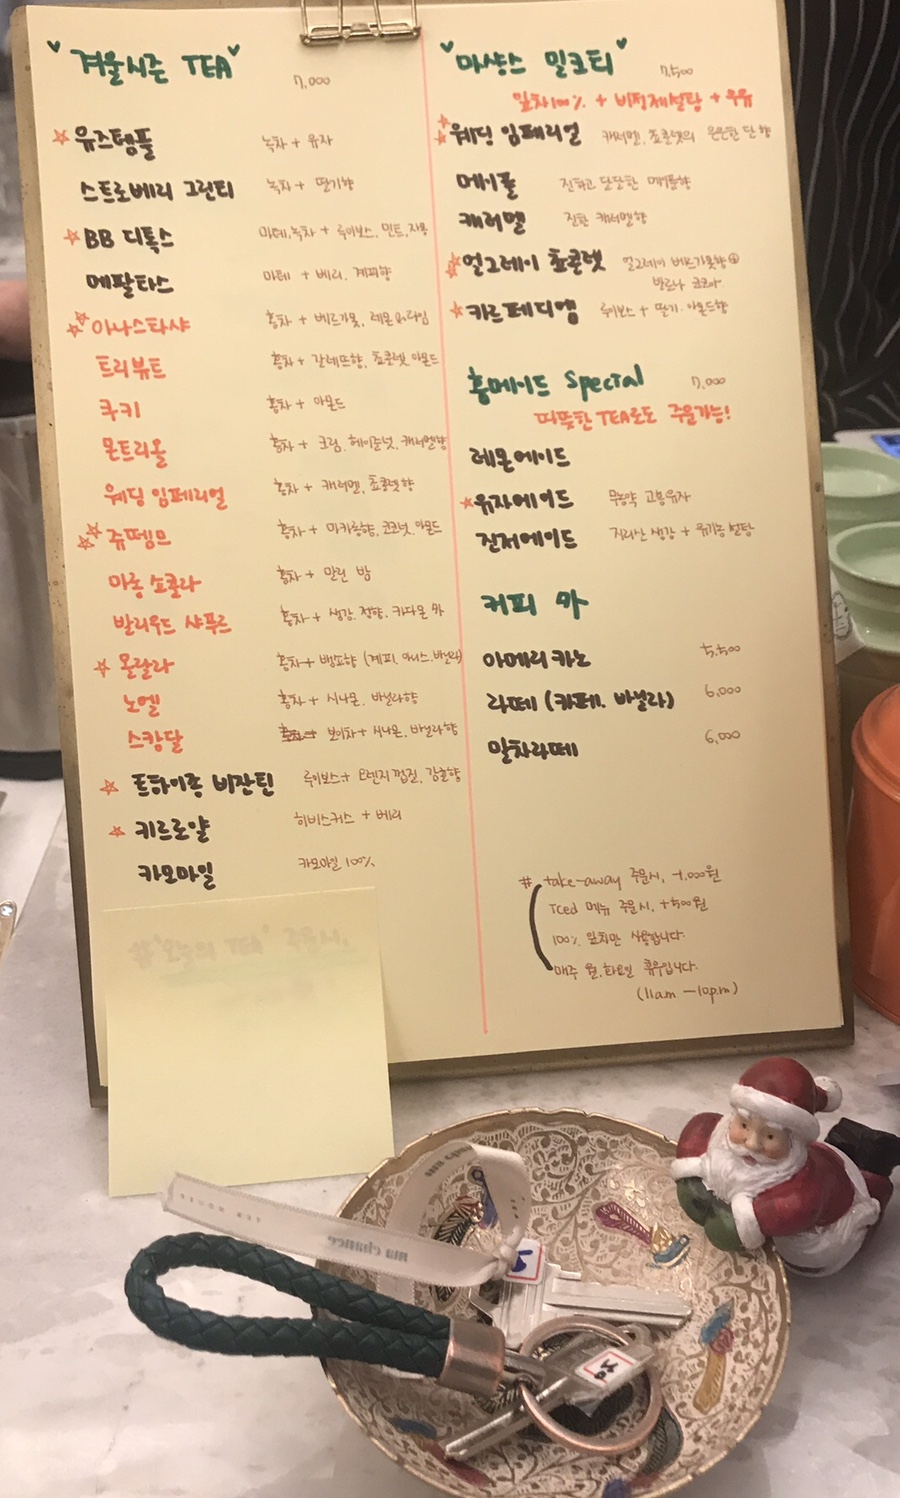 겨울시즌 TEA
7,000
유즈템플 녹차 + 유자
스트로베리 그린티 녹차 + 딸기향
BB 디톡스 마테,녹차 + 루이보스, 민트,자몽
메팔타스 마테 + 베리, 계피향
아나스타샤 홍차 + 베르가못, 레몬&라임
트리뷰트 홍차 + 갈레뜨향, 쵸콜렛, 아몬드
쿠키 홍차 + 아몬드
몬트리올 홍차 + 크림, 헤이즐넛, 캬라멜향
웨딩 임페리얼 홍차 + 캬러멜, 쵸콜렛향
쥬뗌므 홍차 + 마카롱향, 코코넛, 아몬드
마롱 쇼콜라 홍차 + 말린 밤
발리우드 샤푸르 홍차 + 생강, 정향, 카다몬
울랄라 홍차 + 뱅쇼향 (계피, 아니스, 바닐라)
노엘 홍차 + 시나몬, 바닐라향
스캉달 보이차 + 시나몬, 바닐라향
트하이죵 비잔틴 루이보스 + 오렌지 껍질, 감초향
키르로얄 히비스커스 + 베리
카모마일 카모마일 100%
마샹스 밀크티
7,500
잎차100% + 비정제설탕 + 우유
웨딩 임페리얼 캬러멜, 쵸콜렛의 은은한 단향
메이플 진하고 달달한 메이플향
캐러멜 진한 캐러멜향
얼그레이 쵸콜렛 얼그레이 베르가못향 +
발로나 코코아
카르페디엠 루이보스 + 딸기, 아몬드향
홈메이드 Special 7,000
따뜻한 TEA로도 주문가능!
레몬에이드
유자에이드 무농약 고흥유자
진저에이드 지리산 생강 + 유기농 설탕
커피
아메리카노 5,500
라떼 (카페, 바닐라) 6,000
말차라떼 6,000
# take-away 주문시, -1,000원
Iced 메뉴 주문시, +500원
100% 잎차만 사용합니다.
매주 월,화요일 휴무입니다.
(11am - 10p.m)
ma chance
TEA HOUSE
ma chance